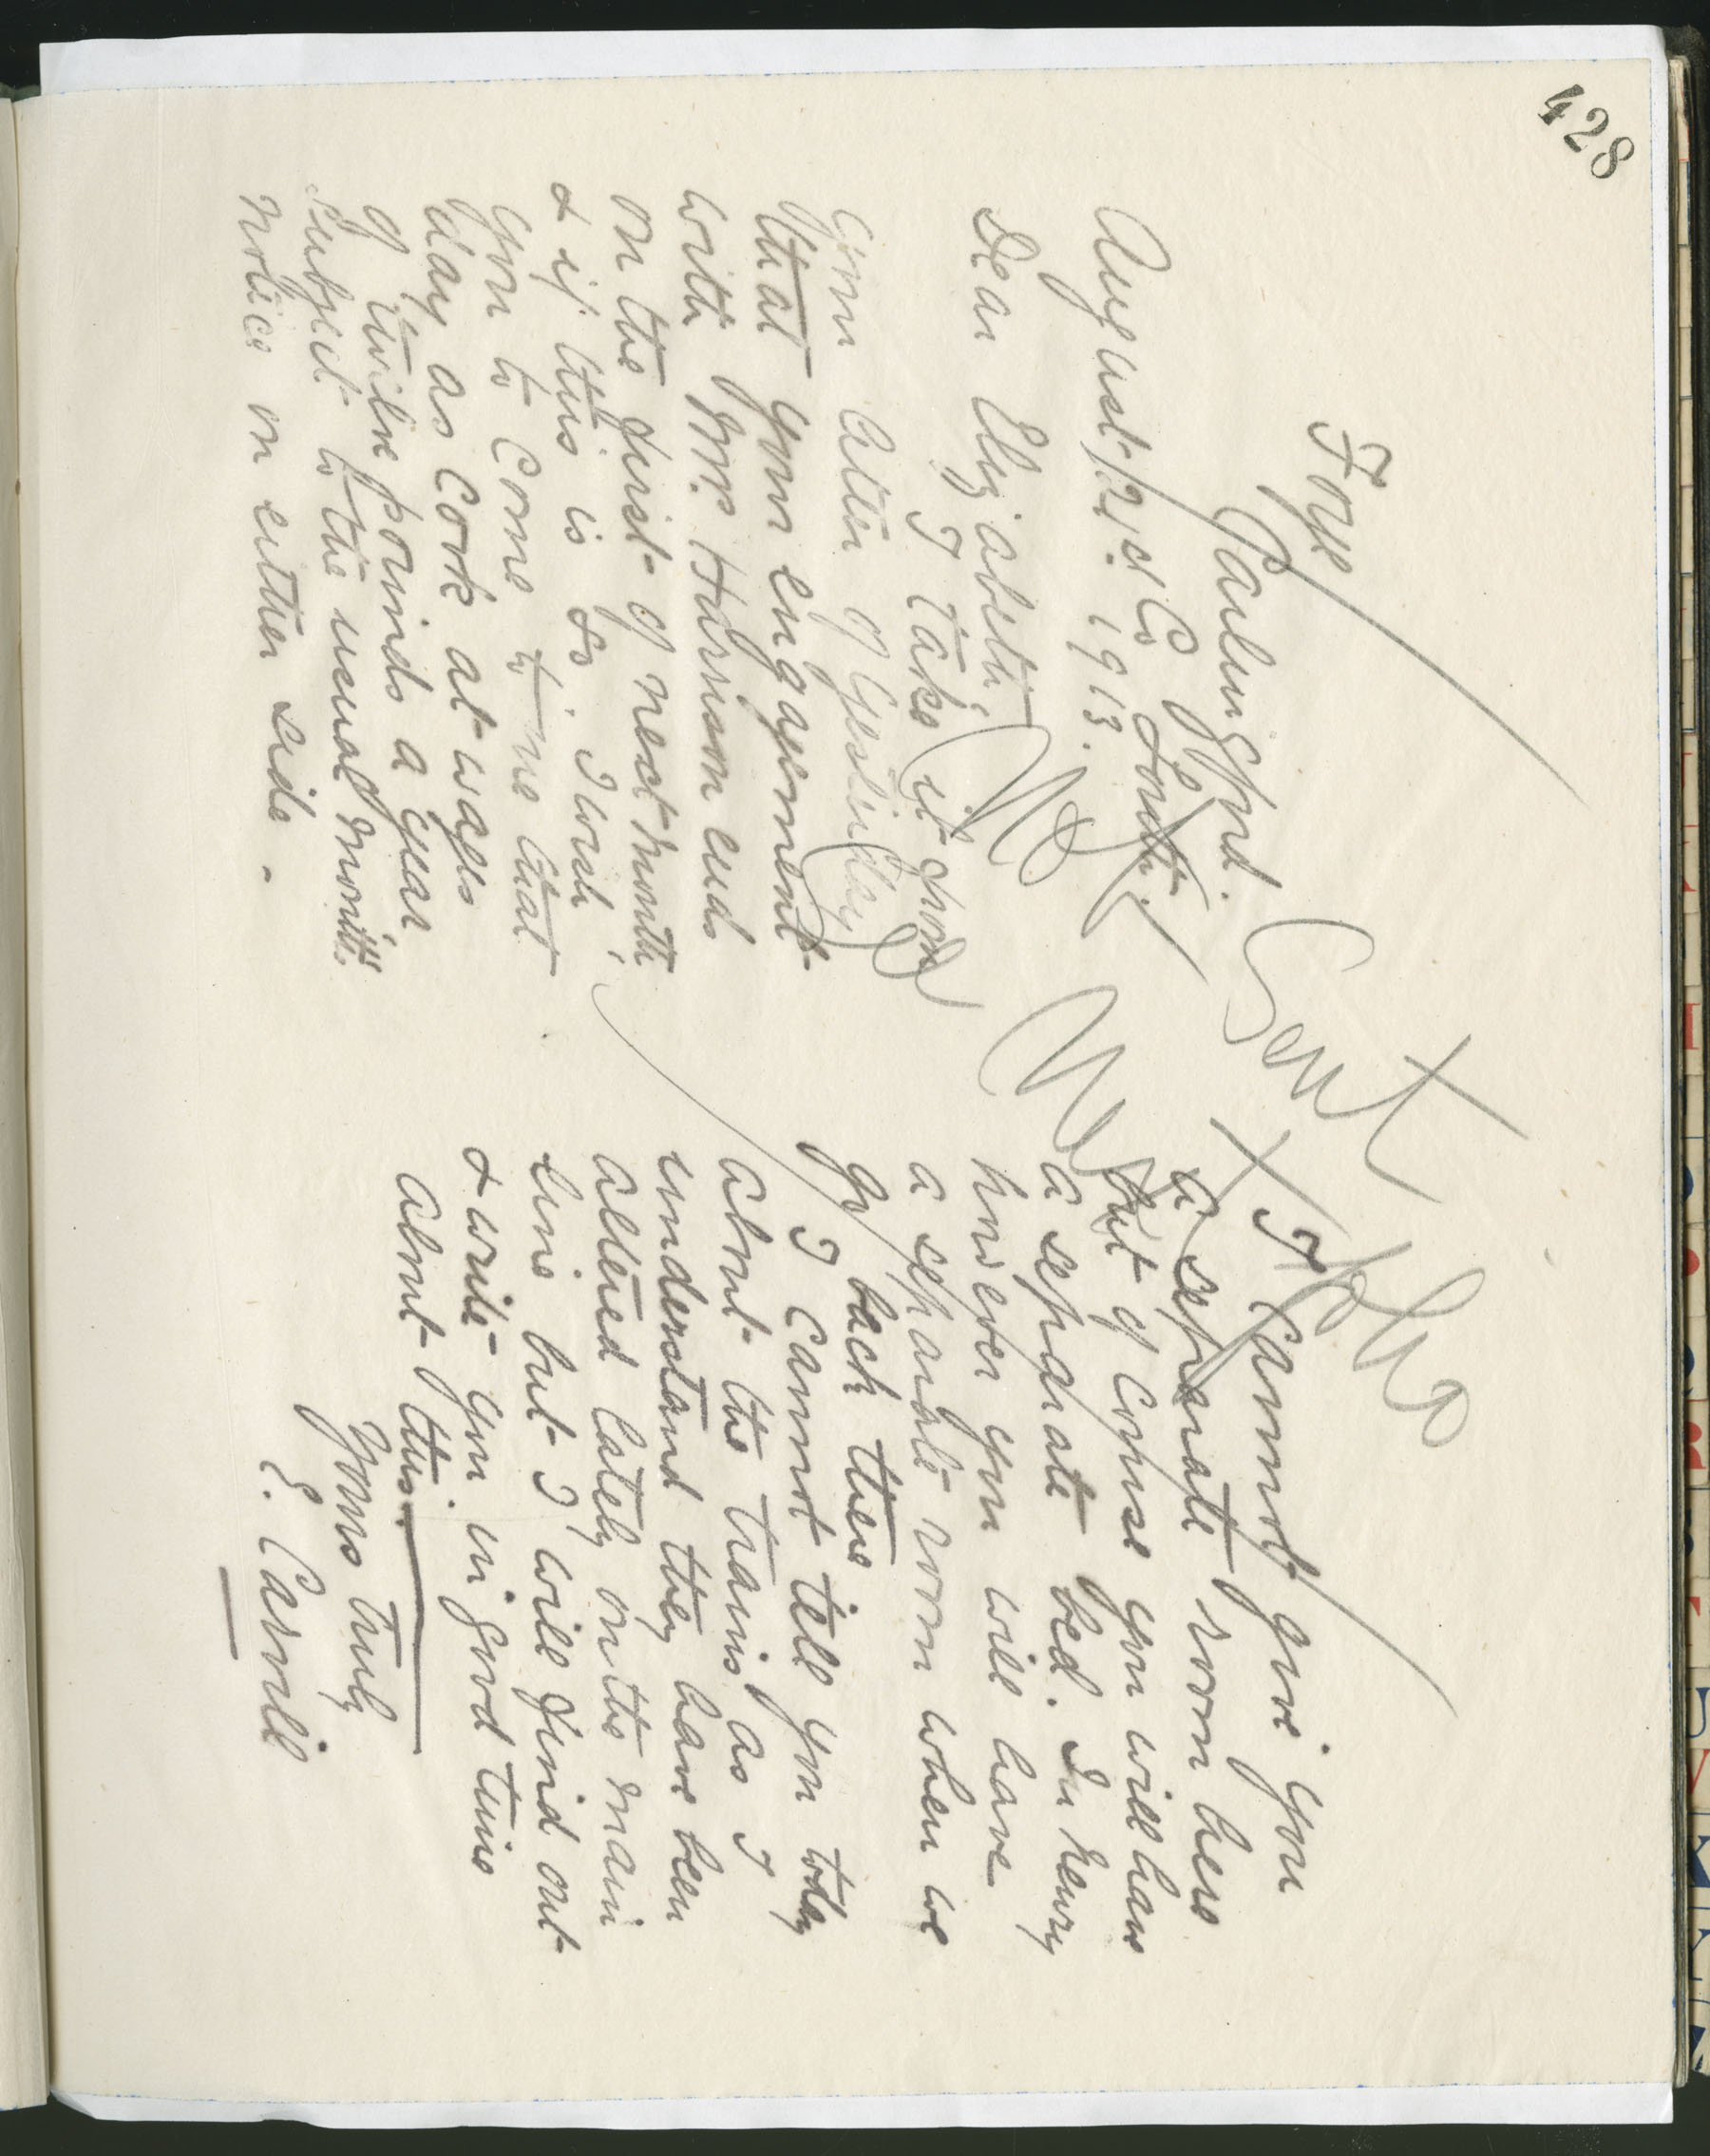 428
Foye
Carlingford.
Co Louth.
August 21st 1913.
Dear Elizabeth
I take it from
your letter of yesterday
that your engagement
with Mrs Harrison ends
on the first of next month
& if this is so, I wish
you to come to me that
day as Cook at wages
of twelve pounds a year
subject to the usual month's
notice on either side.
I cannot give you
a separate room here
but of course you will have
a separate bed. In Newry
however you will have
a separate room when we
go back there
I cannot tell you today
about the trains as I
understand they have been
altered lately on the main
line but I will find out
& write you in good time
about this.
Yours truly
E. Carvill